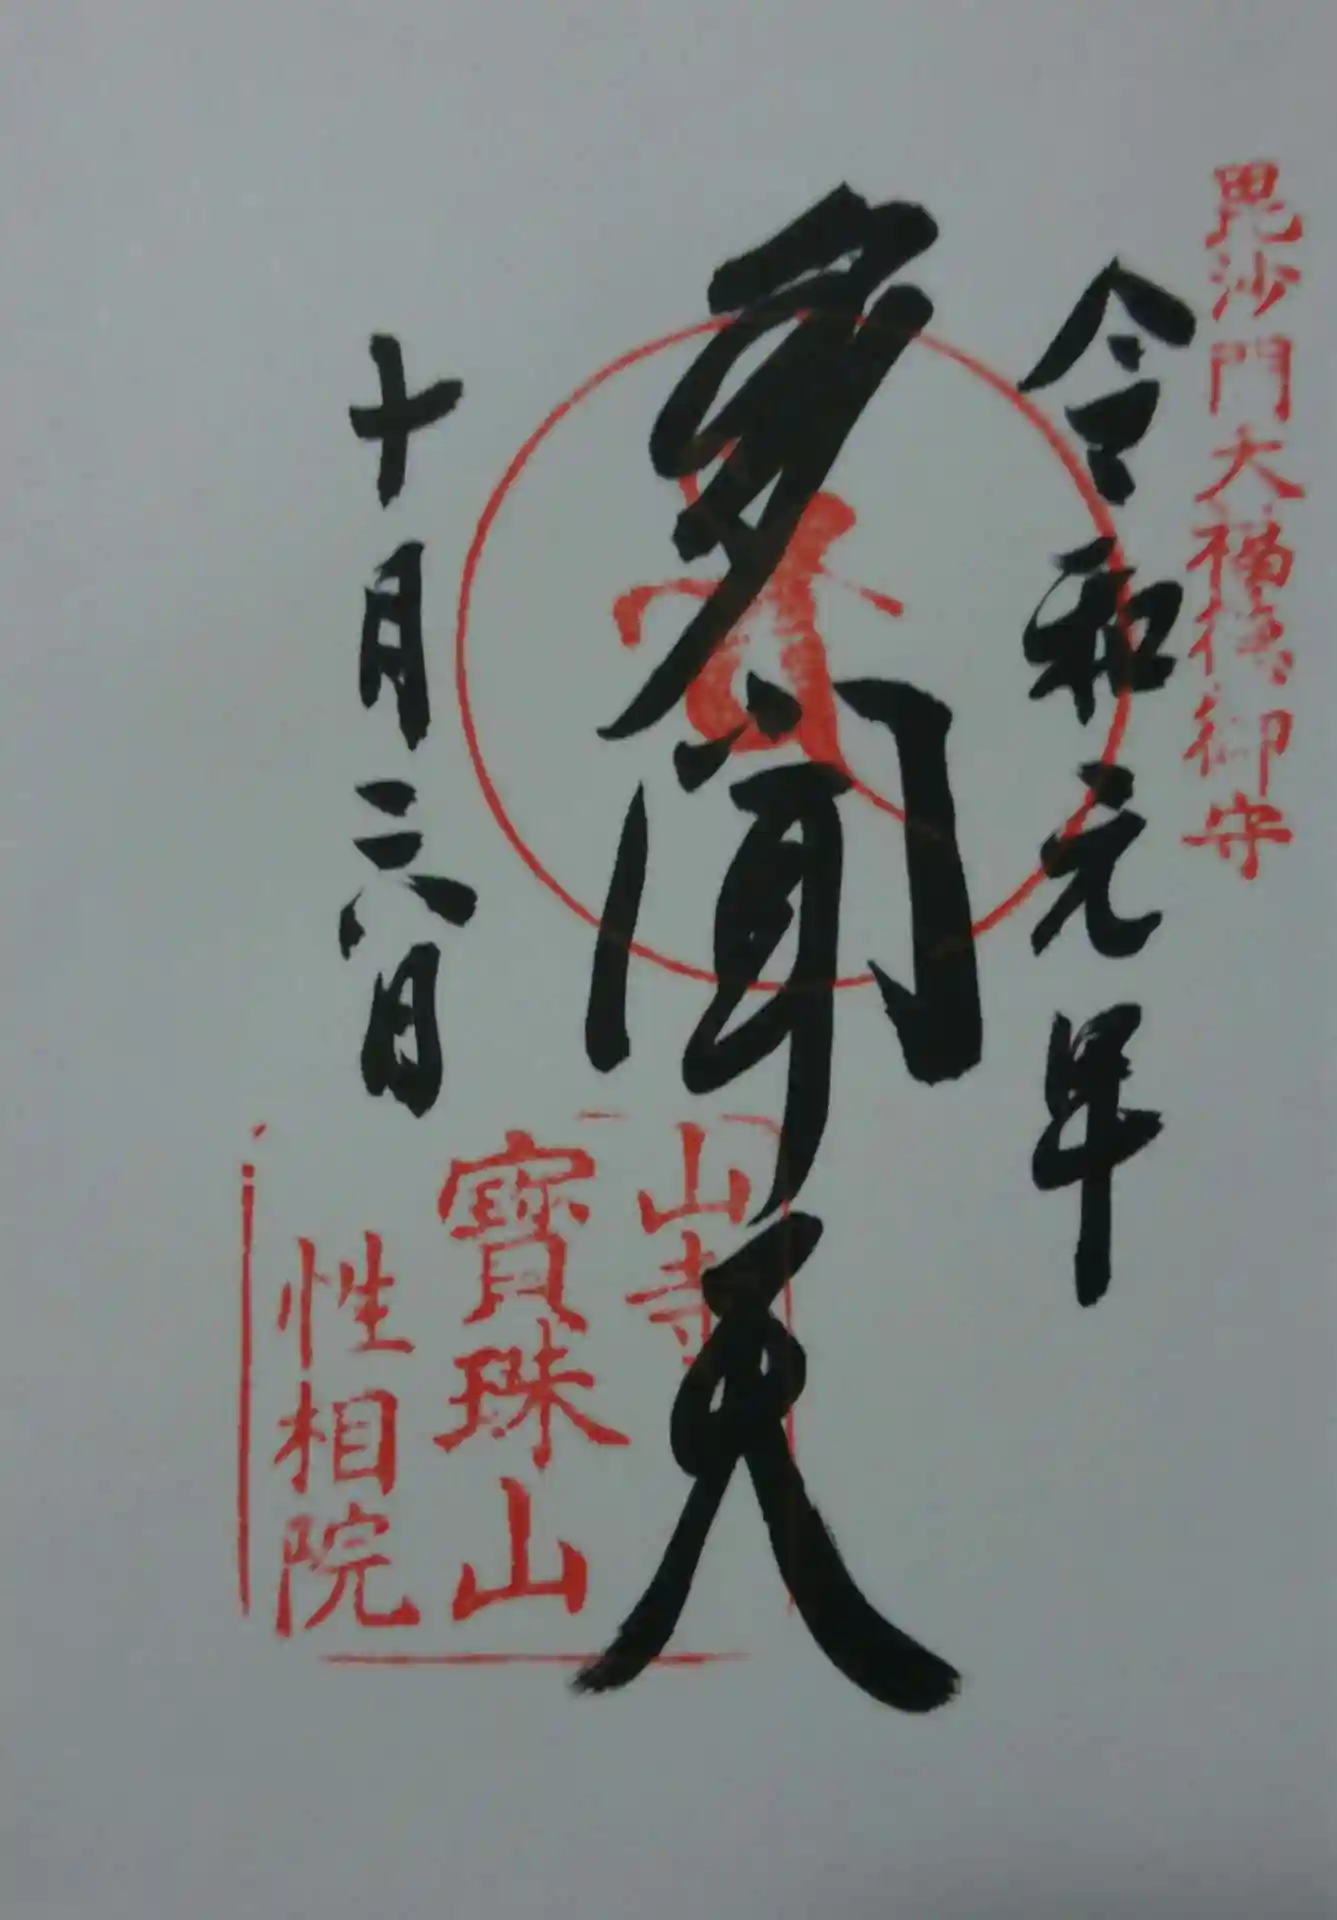 毘沙門大福徳御守
令和元年
多聞天
十月二六日
山寺
寳珠山
性相院